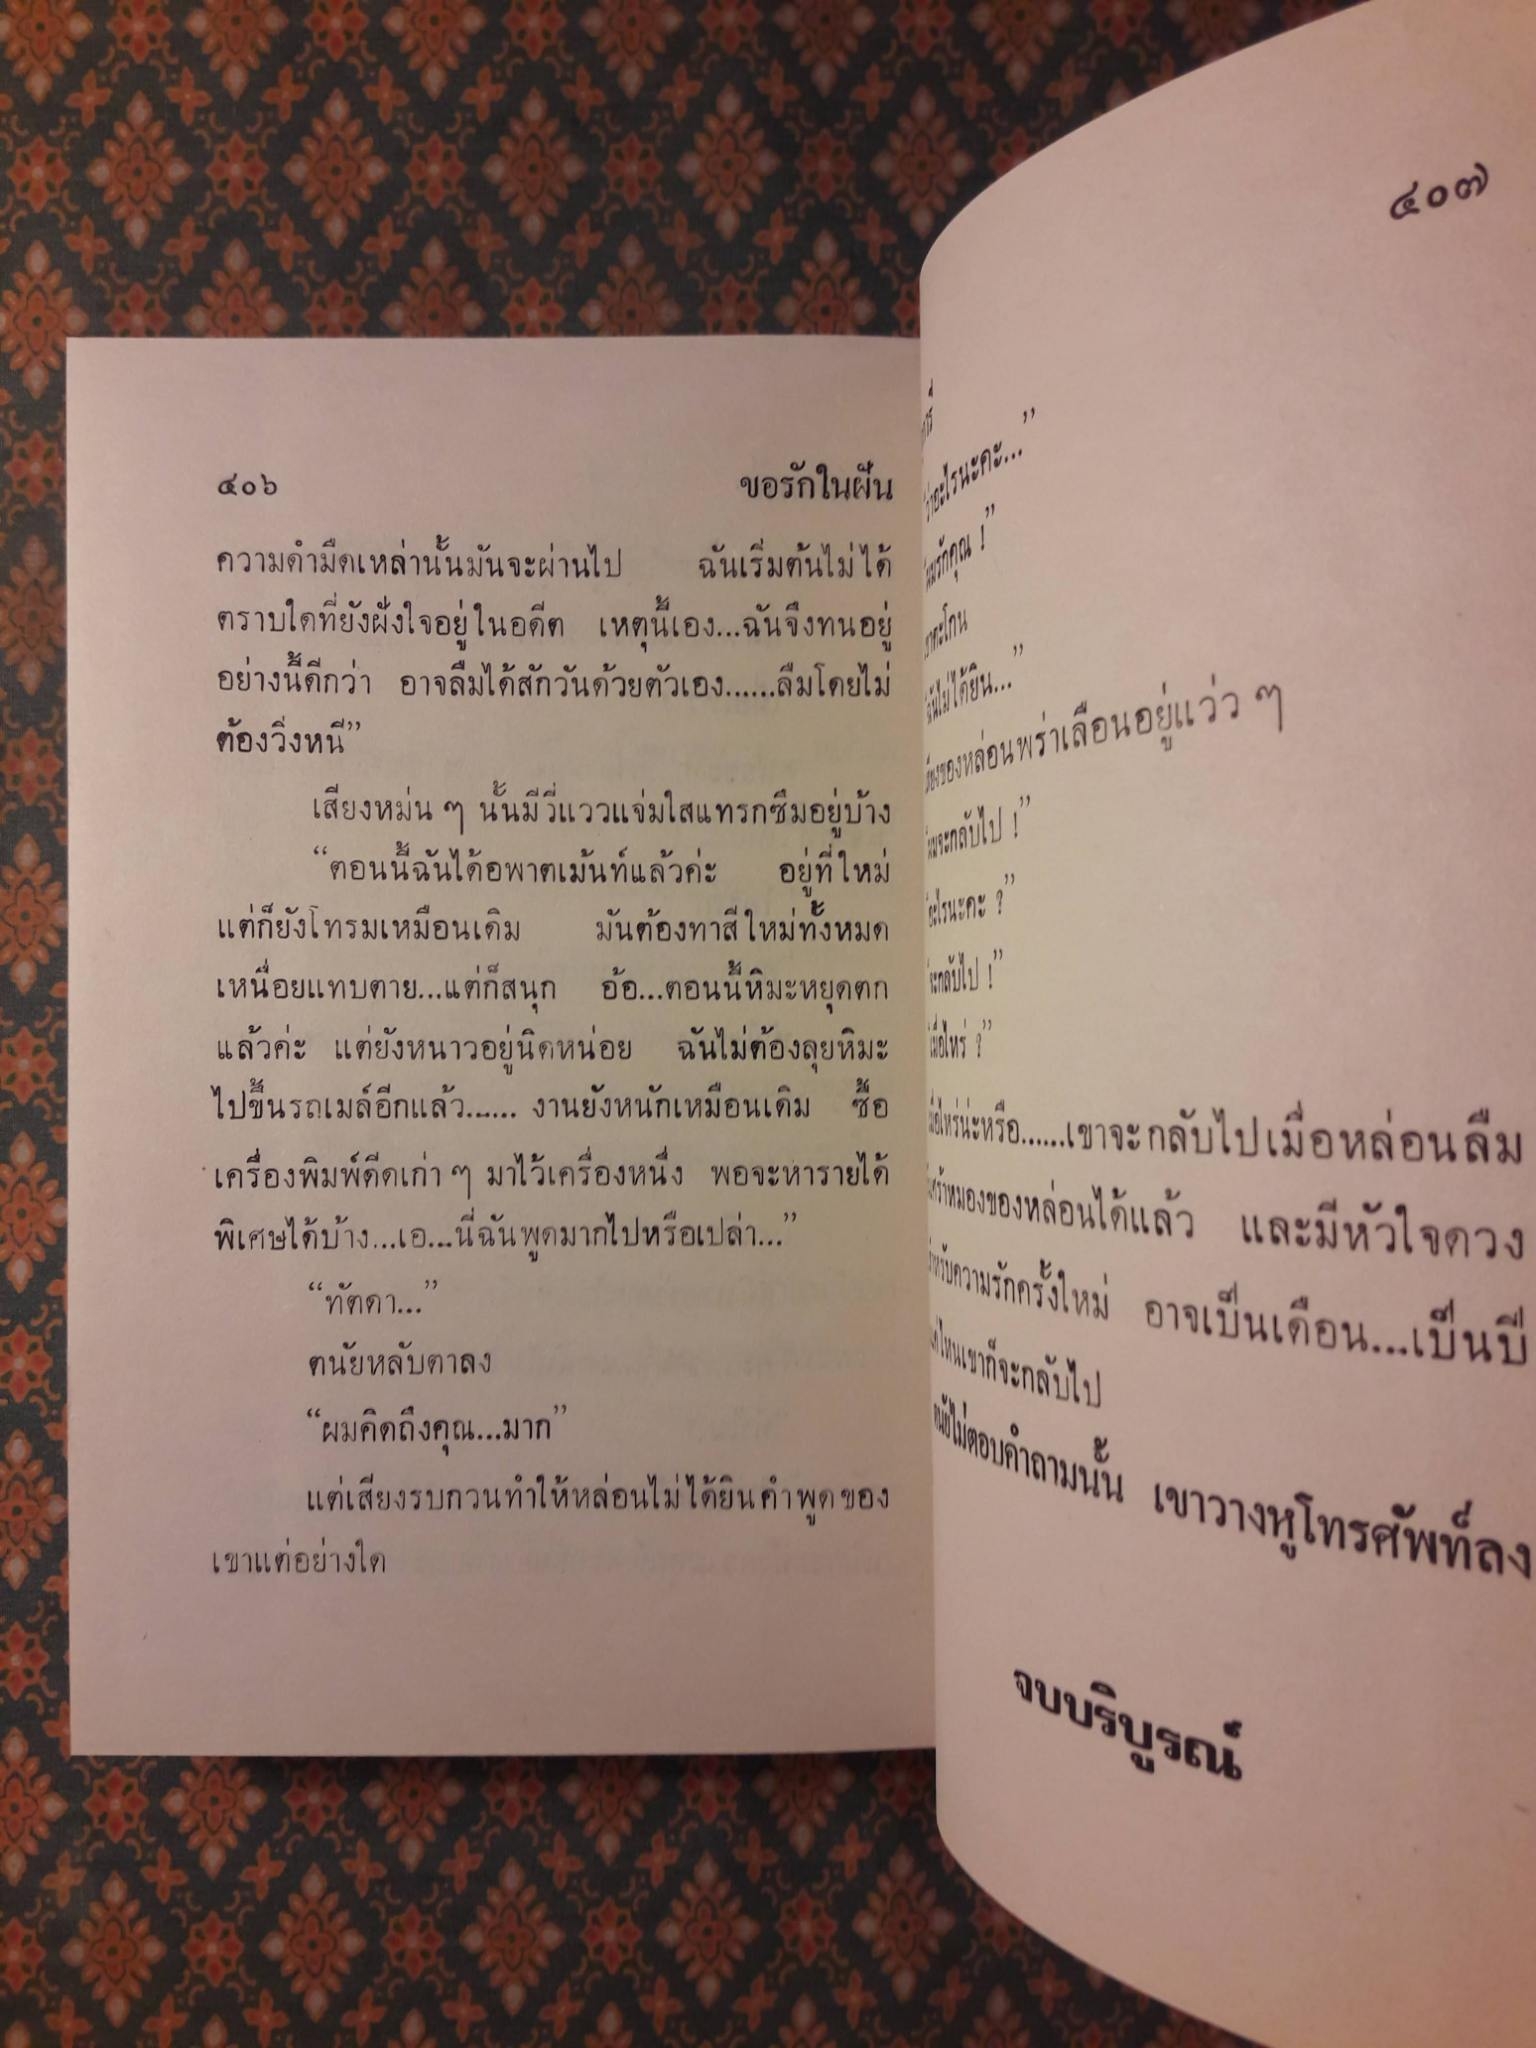 ๔๐๖ ขอรักในฝัน
ความดำมืดเหล่านั้นมันจะผ่านไป ฉันเริ่มต้นไม่ได้
ตราบใดที่ยังฝังใจอยู่ในอดีต เหตุนี้เอง...ฉันจึงทนอยู่
อย่างนี้ดีกว่า อาจลืมได้สักวันด้วยตัวเอง......ลืมโดยไม่
ต้องวิ่งหนี”
เสียงหม่น ๆ นั้นมีวี่แววแจ่มใสแทรกซึมอยู่บ้าง
“ตอนนี้ฉันได้อพาตเม้นท์แล้วค่ะ อยู่ที่ใหม่
แต่ก็ยังโทรมเหมือนเดิม มันต้องทาสีใหม่ทั้งหมด
เหนื่อยแทบตาย...แต่ก็สนุก อ้อ...ตอนนี้หิมะหยุดตก
แล้วค่ะ แต่ยังหนาวอยู่นิดหน่อย ฉันไม่ต้องลุยหิมะ
ไปขึ้นรถเมล์อีกแล้ว...... งานยังหนักเหมือนเดิม ซื้อ
เครื่องพิมพ์ดีดเก่า ๆ มาไว้เครื่องหนึ่ง พอจะหารายได้
พิเศษได้บ้าง...เอ...นี่ฉันพูดมากไปหรือเปล่า...”
“ทัตดา...”
ตนัยหลับตาลง
“ผมคิดถึงคุณ...มาก”
แต่เสียงรบกวนทำให้หล่อนไม่ได้ยินคำพูดของ
เขาแต่อย่างใด
๔๐๗
ว่าอะไรนะคะ...”
ผมรักคุณ !”
ฉันไม่ได้ยิน...”
เสียงของหล่อนพร่าเลือนอยู่แว่ว ๆ
ผมจะกลับไป !”
อะไรนะคะ ?”
จะกลับไป !”
เมื่อไหร่ ?”
เมื่อไหร่น่ะหรือ......เขาจะกลับไปเมื่อหล่อนลืม
เศร้าหมองของหล่อนได้แล้ว และมีหัวใจดวง
สำหรับความรักครั้งใหม่ อาจเป็นเดือน...เป็นปี
เขาก็จะกลับไป
ตนัยไม่ตอบคำถามนั้น เขาวางหูโทรศัพท์ลง
จบบริบูรณ์